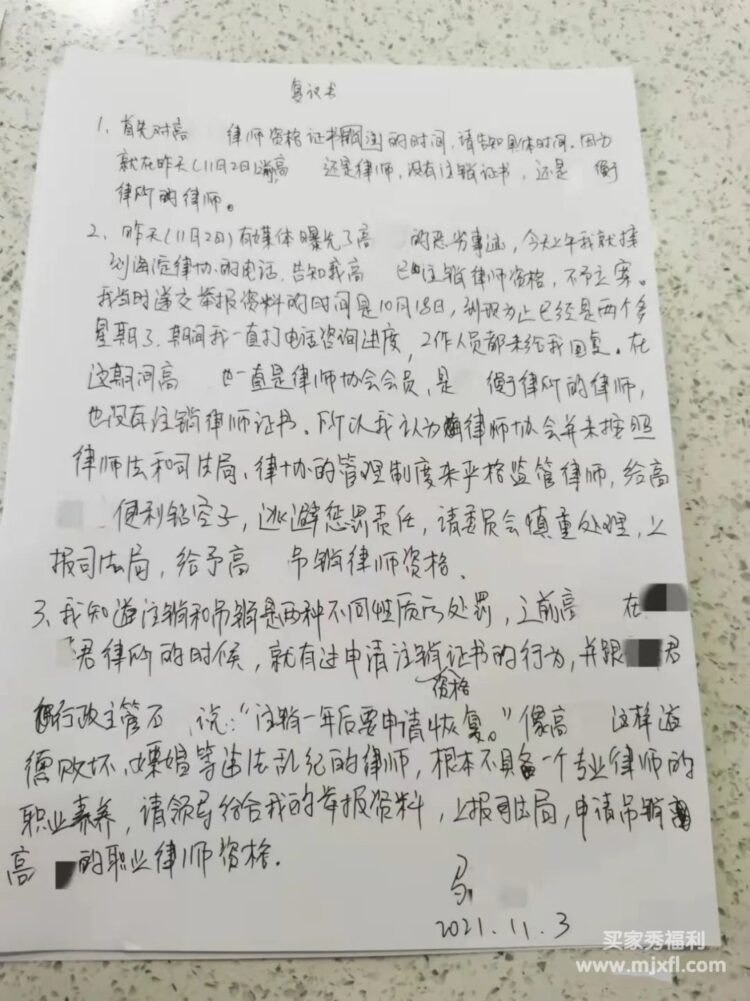 复议书
1、首先对高 律师资格证书 的时间,请告知具体时间。因为
就在昨天(11月2日) 高 还是律师,没有注销证书,还是 衡
律所的律师。
2、昨天(11月2日)有媒体曝光了高 的恶劣事迹,今天上午我就接
到海淀律协的电话,告知我高 已 注销律师资格,不予立案。
我当时递交举报资料的时间是10月18日,到现为止已经是两个多
星期了,期间我一直打电话咨询进度,工作人员都未给我回复。在
这期间高 也一直是律师协会会员,是 衡律所的律师,
也没有注销律师证书。所以我认为 律师协会并未按照
律师法和司法局、律协的管理制度来严格监管律师,给高
便利钻空子,逃避惩罚责任,请委员会慎重处理,上
报司法局,给予高 吊销律师资格。
3、我知道注销和吊销是两种不同性质的处罚,之前高 在
君律所的时候,就有过申请注销证书的行为,并跟 君
资格
行政主管石 说:“注销一年后要申请恢复。”像高 这样道
德败坏、 婚等违法乱纪的律师,根本不具备一个专业律师的
职业素养,请领导结合我的举报资料,上报司法局,申请吊销
高 的职业律师资格.
2021.11.3
买家秀福利
www.mjxfl.com